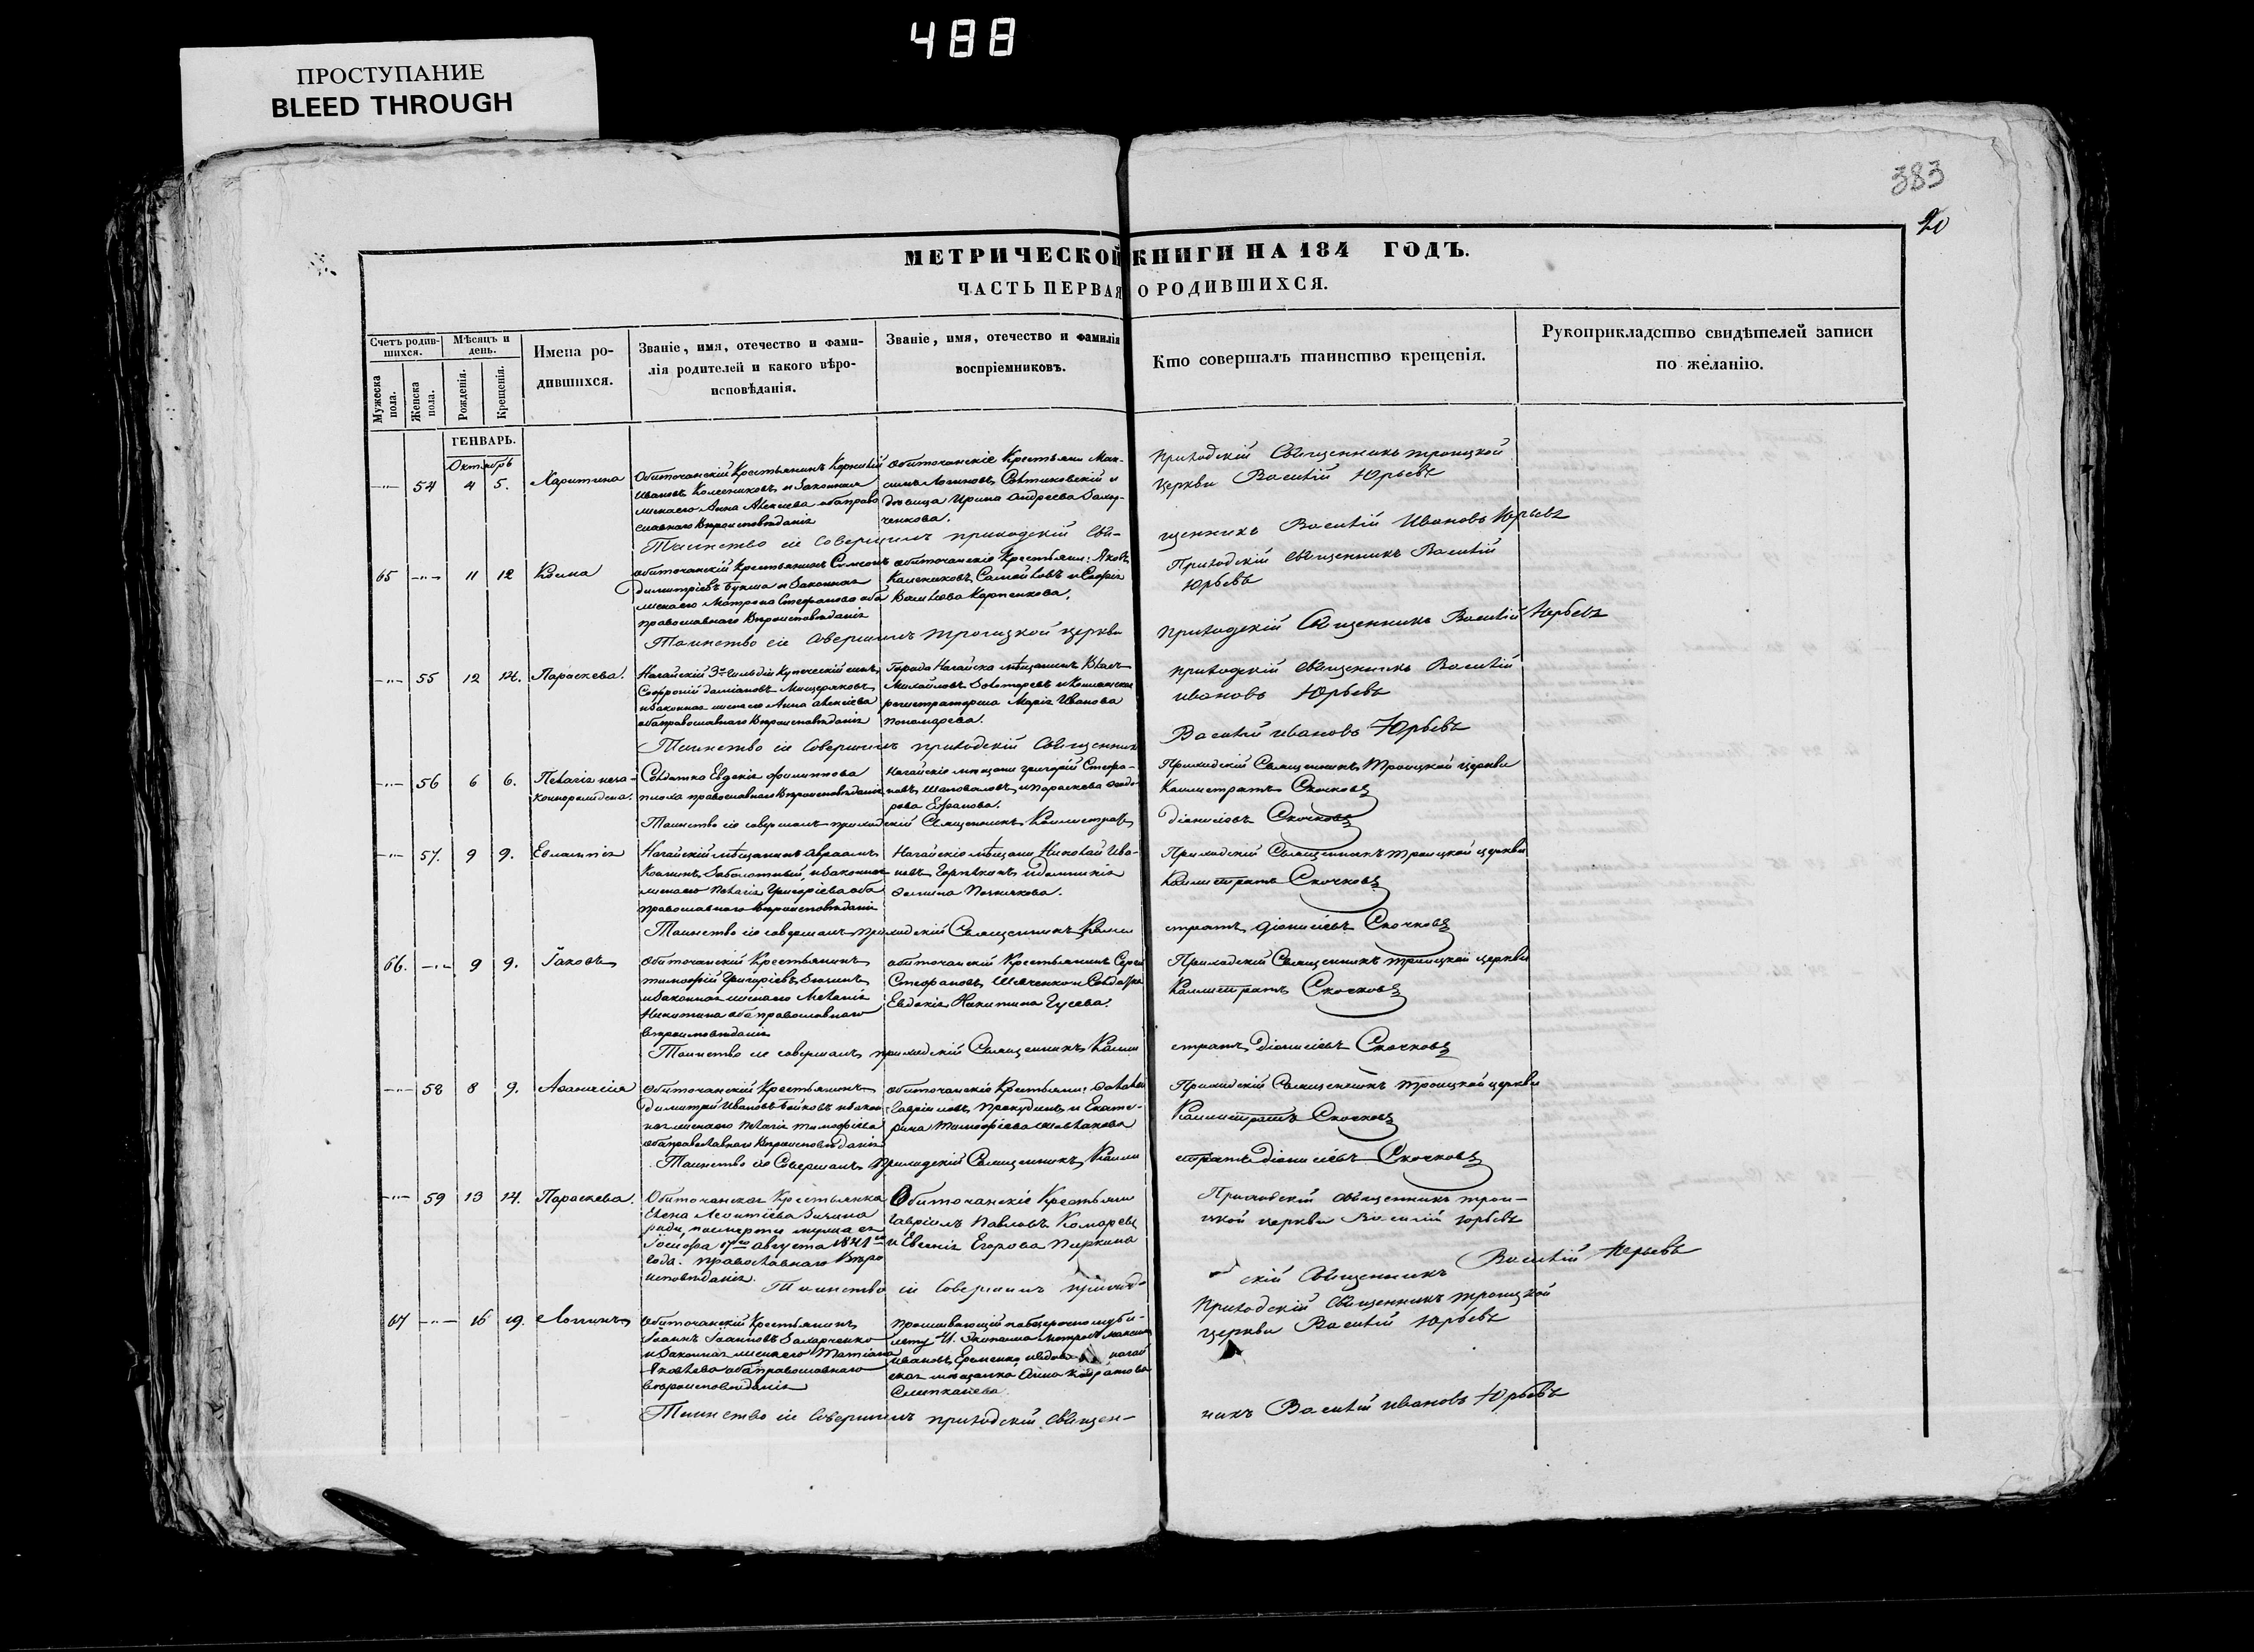 488
ПРОСТУПАНИЕ
BLEED THROUGH
383
20
МЕТРИЧЕСКОЙ КНИГИ НА 184 ГОДЪ.
ЧАСТЬ ПЕРВАЯ О РОДИВШИХСЯ.
Счетъ родив-
шихся.
Мужеска
пола.
Женска
пола.
Мѣсяцъ и
день.
Рожденія.
Крещенія.
Имена ро-
дившихся.
Званіе, имя, отечество и фами-
лія родителей и какого вѣро-
исповѣданія.
Званіе, имя, отечество и фамилія
воспріемниковъ.
Кто совершалъ таинство крещенія.
Рукоприкладство свидѣтелей записи
по желанію.
ГЕНВАРЬ.
Октябрь
54 4 5. Харитина
Обиточанскій Крестьянинъ Корнилій
Ивановъ Колесниковъ и Законная
жена его Анна Алексеева оба право
славнаго Вѣроисповѣданія
обиточанскіе Крестьяни Мак-
симъ Логиновъ и
вдовица Ирина Андреева Захар-
ченкова.
Приходскій Священникъ троицкой
Церкви Василій Юрьевъ
Таинство сіе Совершилъ приходскій Свя-
щенникъ Василій Ивановъ Юрьевъ
65 11 12 Косма
обиточанскій Крестьянинъ Симеонъ
димитріевъ Букша и Законная
жена его Матрона Стефанова оба
православнаго Вѣроисповѣданія
обиточанскіе Крестьяни: Яковъ
Самойловъ и Софія
Васильева Карпенкова.
Приходскій Священникъ Василій
Юрьевъ
Таинство сіе Совершилъ троицкой церкви
приходскій Священникъ Василій Юрьевъ
55 12 14. Параскева.
Ногайскій 3й гильдіи Купеческій сынъ
Софроній даміановъ Мищеряковъ
и Законная жена его Анна Алексіева
оба православнаго Вѣроисповѣданія
Города Ногайска мѣщанинъ Власъ
Михайловъ Золотаревъ и Коллежская
регистраторша Марія Иванова
пономарева.
приходскій Священникъ Василій
ивановъ Юрьевъ
Таинство сіе Совершилъ приходскій Священникъ
Василій ивановъ Юрьевъ
56 6 6. Пелагія неза-
коннорожденна.
Солдатка Евдокія филиппова
православнаго Вѣроисповѣданія
Ногайскіе мѣщани григорій Стефа-
новъ Шаповаловъ и параскева феодо-
рова
Приходскій Священникъ Троицкой церкви
Каллистратъ Скочковъ
Таинство сіе совершалъ приходскій Священникъ Каллистратъ
діонисіевъ Скочковъ
57. 9 9. Евлампія
Ногайскій мѣщанинъ Авраамъ
Заболотный и законная
жена его Пелагія Григоріева оба
православнаго вѣроисповѣданія
Ногайскіе мѣщани Николай Ива-
новъ и домникія
Приходскій Священникъ троицкой церкви
Каллистратъ Скочковъ
Таинство сіе совершалъ приходскій Священникъ Калли
стратъ діонисіевъ Скочковъ
66. 9 9. Іаковъ
Обиточанскій Крестьянинъ
тимофій Григоріевъ
и Законная жена его Меланія
Никитина оба православнаго
вѣроисповѣданія
обиточанскій Крестьянинъ Сергій
Стефановъ Шевченко и Солдатка
Евдокія Никитина Гусева.
Приходскій Священникъ троицкой церкви
Каллистратъ Скочковъ
Таинство сіе совершалъ приходскій Священникъ Калли
стратъ діонисіевъ Скочковъ
58 8 9. Афанасія
Обиточанскій Крестьянинъ
димитрій Ивановъ Бойковъ и закон-
ная жена его Пелагія тимофіева
оба православнаго Вѣроисповѣданія
обиточанскіе Крестьяни:
Гавріиловъ Прокудинъ и Екате-
рина Тимофіева
Приходскій Священникъ троицкой церкви
Каллистратъ Скочковъ
Таинство сіе Совершалъ Приходскій Священникъ Калли
стратъ діонисіевъ Скочковъ
59 13 14. Параскева.
Обиточанская Крестьянка
Елена Леонтіева
по смерти мужа ея
Іосифа 17го Августа 1841го
года. православнаго Вѣро
исповѣданія.
Обиточанскіе Крестьяни
Гавріилъ Павловъ Комаревъ
и Евгенія Егорова
Приходскій Священникъ трои-
цкой церкви Василій Юрьевъ
Таинство сіе Совершилъ приход-
скій Священникъ Василій Юрьевъ
67 16 19. Логгинъ
Обиточанскій Крестьянинъ
Іоаннъ Іоанновъ Захарченко
и Законная жена его Татіана
Яковлева оба православнаго
вѣроисповѣданія
Проживающій
Экипажа матросъ максимъ
ивановъ Еременко ногай
ская мѣщанка Анна
Приходскій Священникъ троицкой
церкви Василій Юрьевъ
Таинство сіе Совершилъ приходскій Священ-
никъ Василій ивановъ Юрьевъ